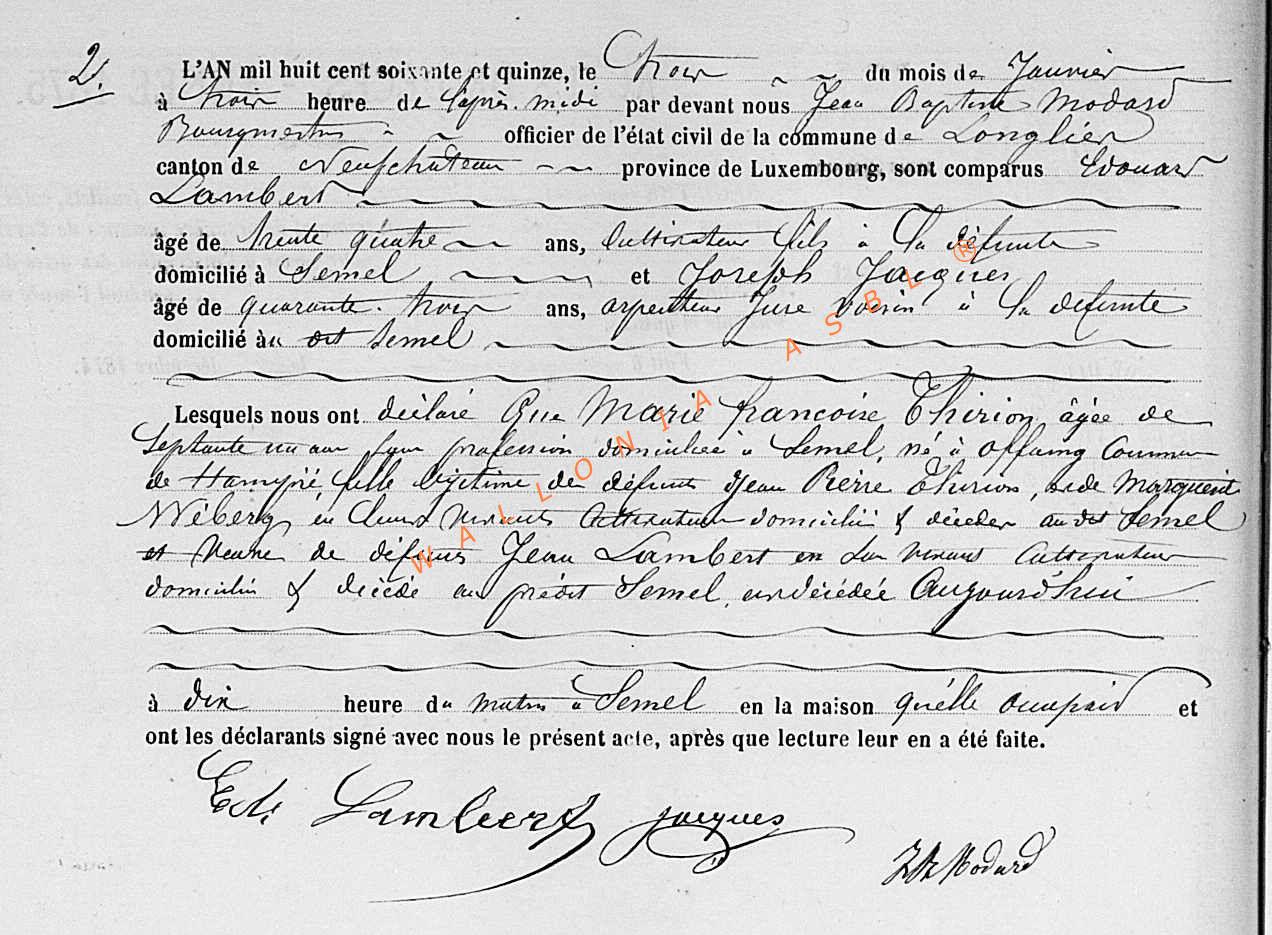 2.
L'AN mil huit cent soixante et quinze, le trois du mois de Janvier
à trois heure de l'après-midi par devant nous Jean Baptiste Modard
Bourgmestre officier de l'état civil de la commune de Longlier
canton de Neufchâteau province de Luxembourg, sont comparus Edouard
Lambert
âgé de trente quatre ans, cultivateur fils à la défunte
domicilié à Semel et Joseph Jacques
âgé de quarante-trois ans, arpenteur Juré voisin à la défunte
domicilié au dit Semel
Lesquels nous ont déclaré que Marie françoise Thirion âgée de
Septante un ans profession domiciliée à Semel, né à offaing Commune
de Hamipré, fille légitime de défunts Jean Pierre Thirion, et de Marguerite
Wéberg en leurs vivants cultivateurs domiciliés & décédés au dit Semel
et veuve de défunt Jean Lambert en son vivant cultivateur
domicilié & décédé au prédit Semel, est décédée Aujourd'hui
à dix heure du matin à Semel en la maison qu'elle occupait et
ont les déclarants signé avec nous le présent acte, après que lecture leur en a été faite.
Ed. Lambert Jacques
JB Modard
WALLONIA ASBL ®